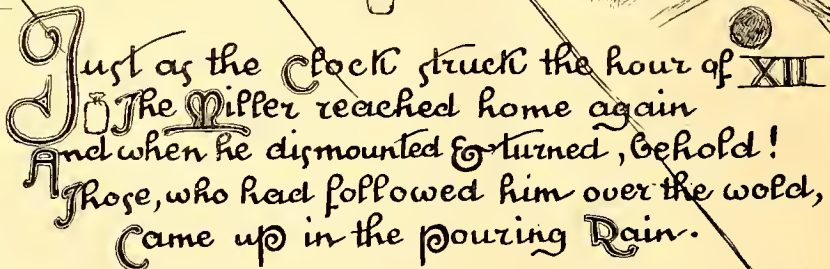 Just as the Clock struck the hour of XII
The Miller reached home again
And when he dismounted & turned, behold!
Those, who had followed him over the wold,
Came up in the pouring Rain.